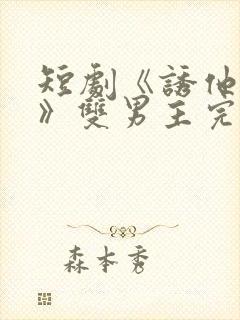 短劇《誘他
》雙男主完
森本秀